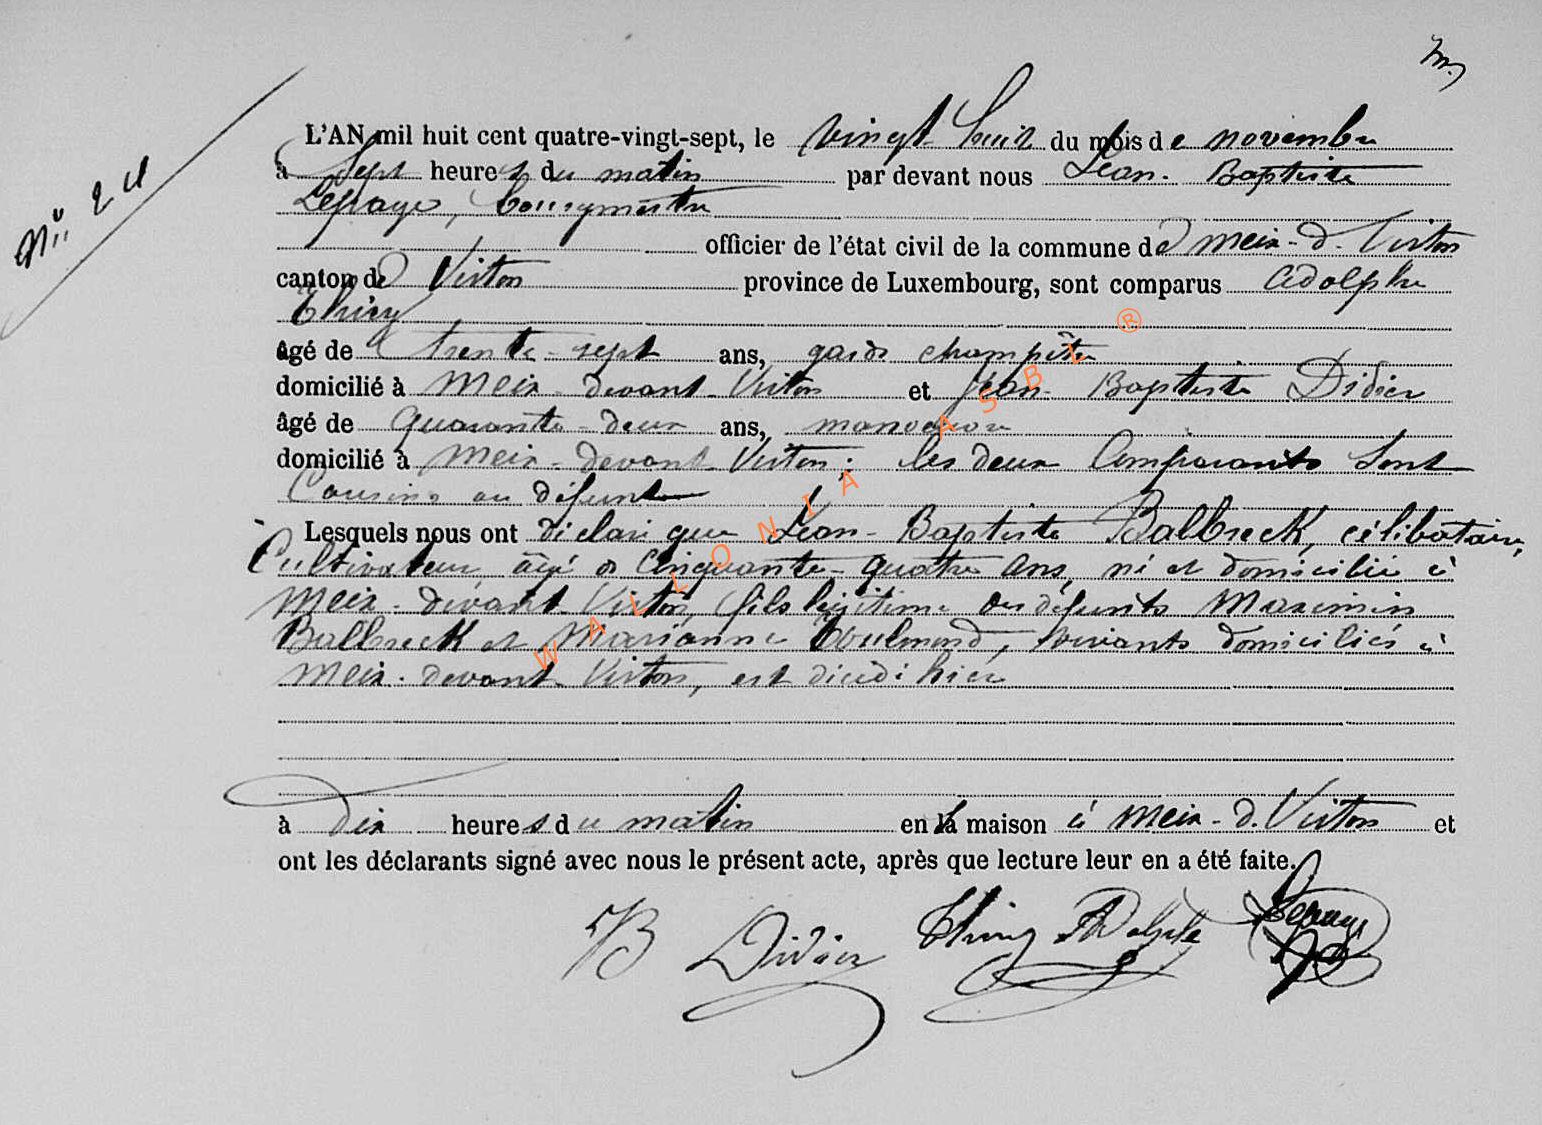 Nº 24
L'AN mil huit cent quatre-vingt-sept, le vingt huit du mois de novembre
à Sept heures du matin par devant nous Jean-Baptiste
Lepage, bourgmestre
officier de l'état civil de la commune de Meix-d-Virton
canton de Virton province de Luxembourg, sont comparus Adolphe
Thiry
âgé de trente-sept ans, garde champêtre
domicilié à Meix-devant-Virton et Jean-Baptiste Didier
âgé de quarante-deux ans, manoeuvre
domicilié à Meix-devant Virton; les deux Comparants sont
Cousins au défunt
Lesquels nous ont déclaré que Jean-Baptiste Balbreck, célibataire,
Cultivateur âgé de Cinquante-quatre ans, né et domicilié à
Meix-devant-Virton, fils légitime des défunts Maximin
Balbreck et Marianne Toulmond, vivants domiciliés à
Meix-devant-Virton, est décédé hier
à dix heures du matin en sa maison à Meix-d-Virton et
ont les déclarants signé avec nous le présent acte, après que lecture leur en a été faite.
JB Didier Thiry Adolphe Lepage
WALLONIA ASBL ®